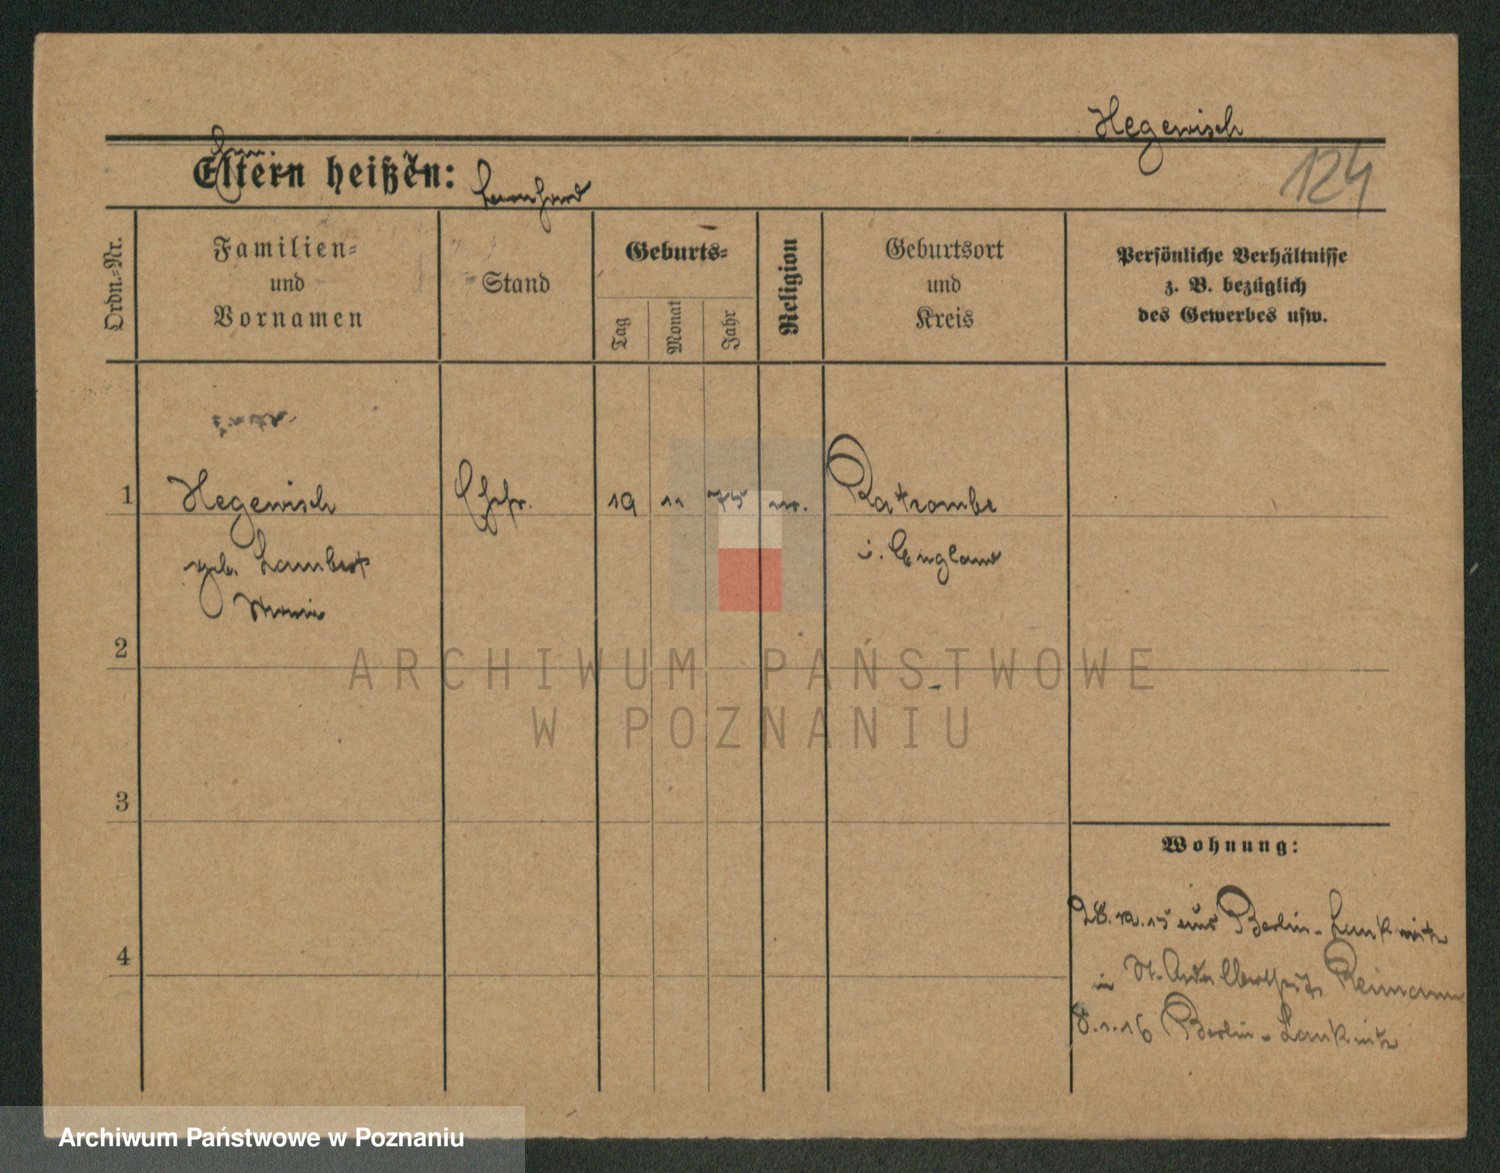 Hegewisch
124
Eltern heißen:
Ordn.-Nr.
Familien-
und
Vornamen
Stand
Geburts-
Tag
Monat
Jahr
Religion
Geburtsort
und
Kreis
Persönliche Verhältnisse
z. B. bezüglich
des Gewerbes usw.
1 Hegewisch Ehefr. 19 11 75
geb. Lambert i. England
2
ARCHIWUM PAŃSTWOWE
W POZNANIU
3
Wohnung:
28.12.15 aus Berlin-Lankwitz
4
in St. Reimann
8.1.16 Berlin-Lankwitz
Archiwum Państwowe w Poznaniu